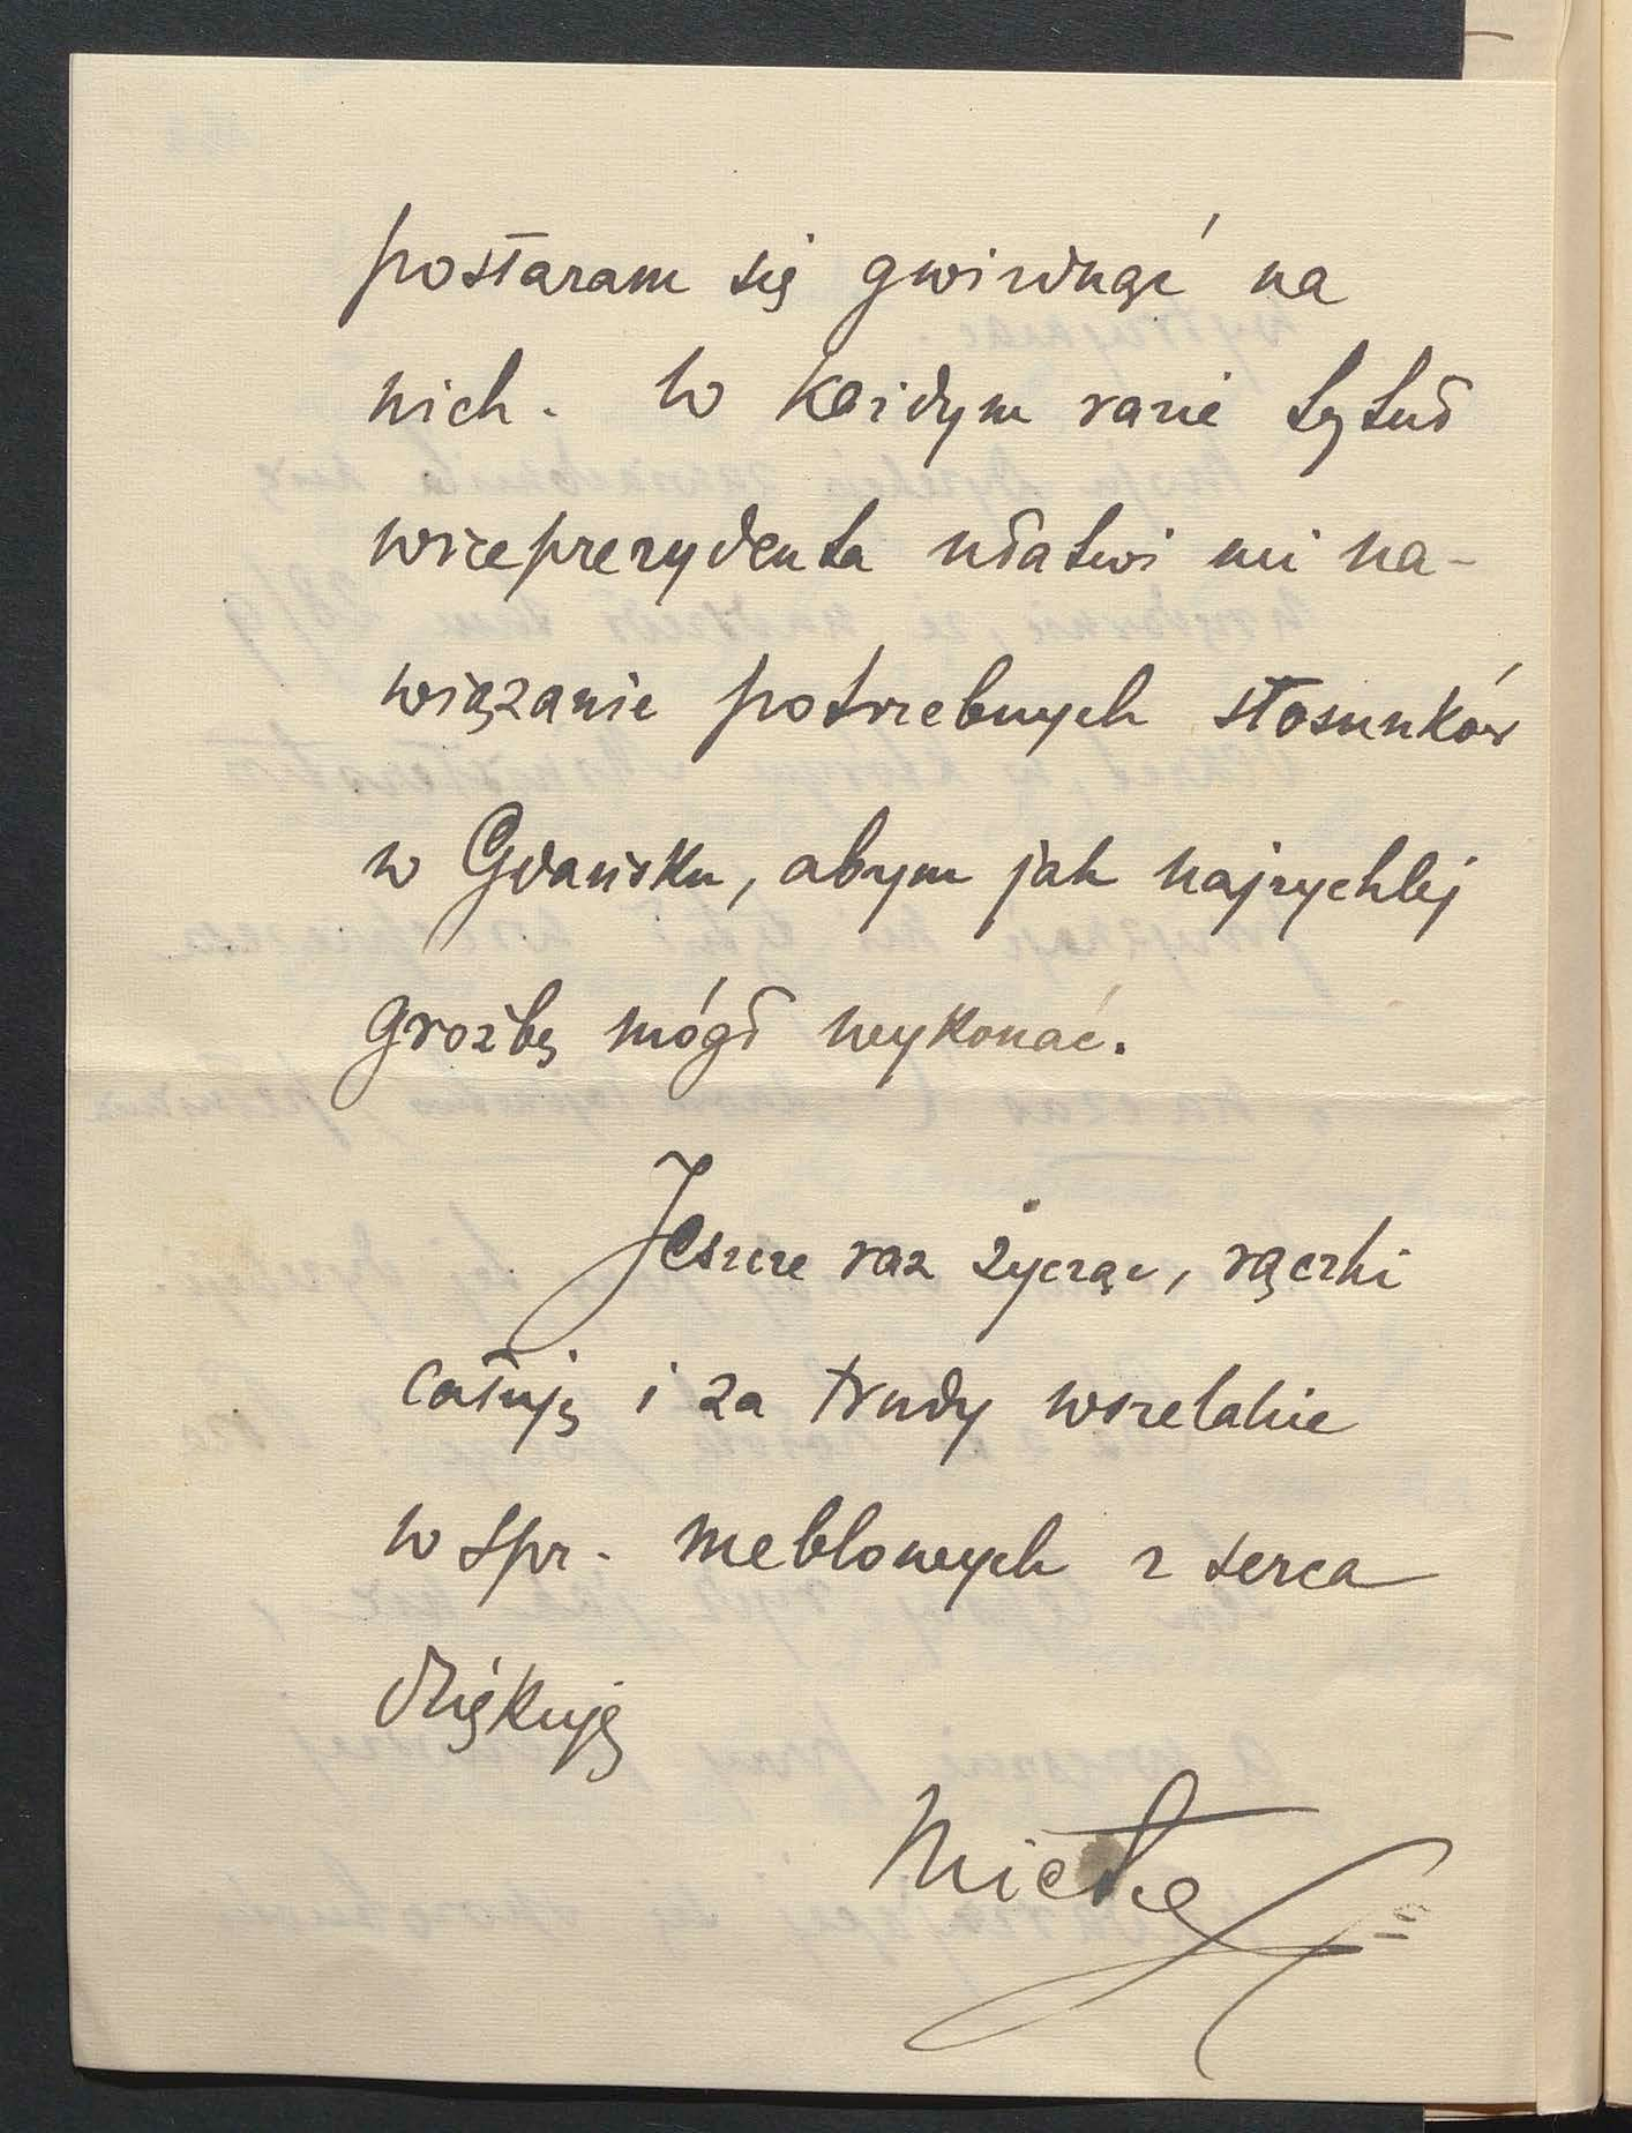 postaram się gwizdnąć na
nich. W każdym razie tytuł
wiceprezydenta ułatwi mi na-
wiązanie potrzebnych stosunków
w Gdańsku, abym jak najrychlej
groźbę mógł wykonać.
Jeszcze raz życząc, rączki
całuję i za trudy wszelakie
w spr. meblowych z serca
dziękuję